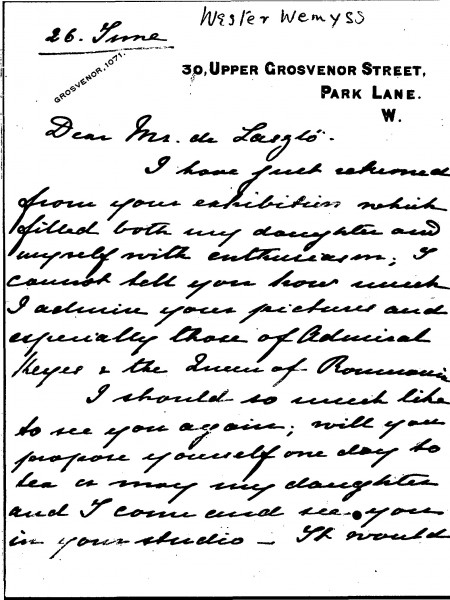 Wester Wemyss
26. June
GROSVENOR, 1071.
30, UPPER GROSVENOR STREET,
PARK LANE.
W.
Dear Mr. de László.
I have just returned
from your exhibition which
filled both my daughter and
myself with enthusiasm; I
cannot tell you how much
I admire your pictures and
especially those of Admiral
Keyes & the Queen of Roumania
I should so much like
to see you again; will you
propose yourself one day to
tea or may my daughter
and I come and see you
in your studio — It would